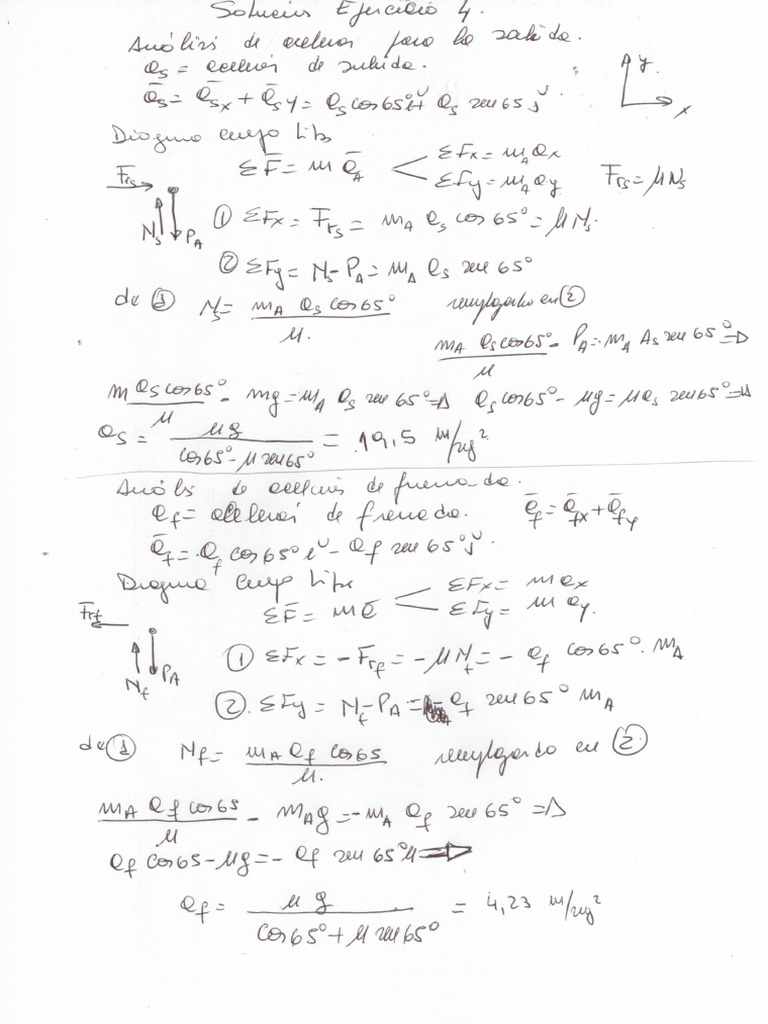 Solución Ejercicio 4.
Análisis de aceleración para la salida.
as = aceleración de subida.
ās = āsx + āsy = as cos65° i + as sen65 j
y
x
Diagrama cuerpo libre
ΣF̄ = m āA
ΣFx = mA ax
ΣFy = mA ay
Frs = μNs
Frs
Ns PA
① ΣFx = Frs = mA as cos 65° = μNs.
② ΣFy = Ns - PA = mA as sen 65°
de ① Ns = mA as cos65° / μ. remplazando en ②
mA as cos65° / μ - PA = mA As sen 65° ⇒
m as cos65° / μ - mg = mA as sen 65° ⇒ as cos65° - μg = μas sen65° ⇒
as = μg / cos65° - μ sen65° = 19,5 m/sg²
Análisis de aceleración de frenado.
af = aceleración de frenado. āf = āfx + āfy
āf = af cos65° i - af sen65° j.
Diagrama cuerpo libre
ΣF̄ = mā
ΣFx = m ax
ΣFy = m ay.
Frf
Nf PA
① ΣFx = -Frf = -μNf = - af cos65°. mA
②. ΣFy = Nf - PA = - af sen 65° mA
de ① Nf = mA af cos 65 / μ. remplazando en ②
mA af cos65 / μ - mAg = -mA af sen 65° ⇒
af cos65 - μg = - af sen 65°μ ⇒
af = μ g / cos65° + μ sen65° = 4,23 m/sg²